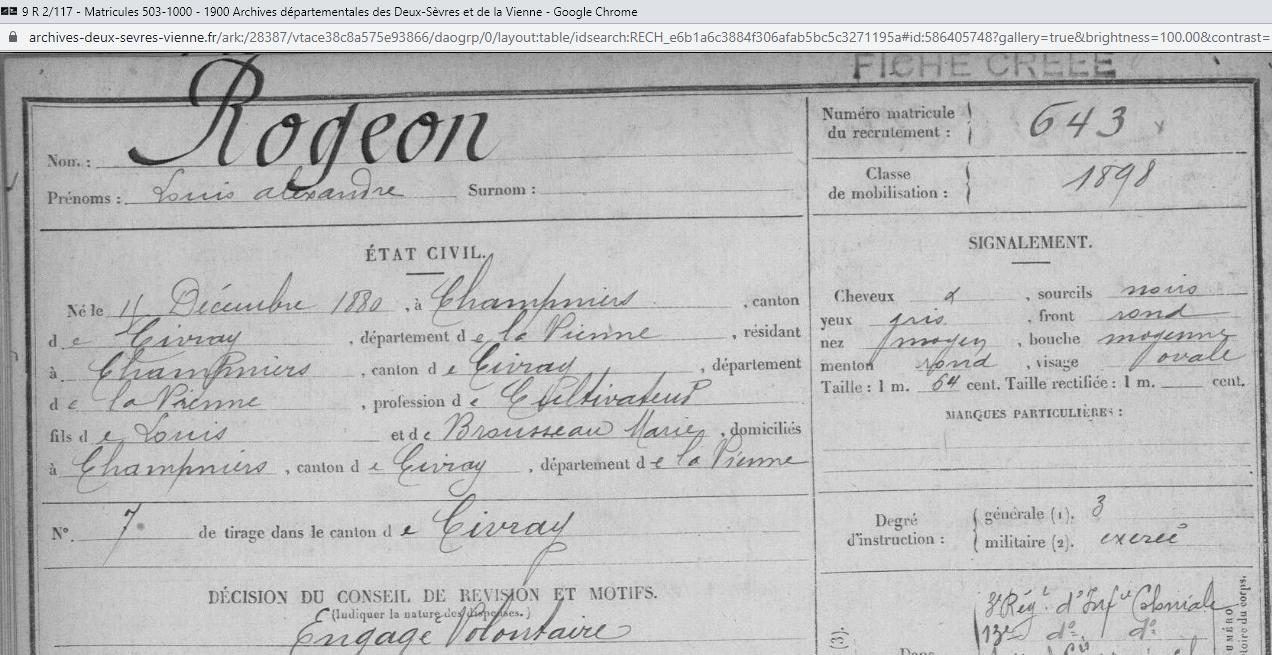 9 R 2/117 - Matricules 503-1000 - 1900 Archives départementales des Deux-Sèvres et de la Vienne - Google Chrome
archives-deux-sevres-vienne.fr/ark:/28387/vtace38c8a575e93866/daogrp/0/layout:table/idsearch:RECH_e6b1a6c3884f306afab5bc5c3271195a#id:586405748?gallery=true&brightness=100.00&contrast=
FICHE CRÉÉE
Nom. : Rogeon
Prénoms : Louis alexandre Surnom :
Numéro matricule du recrutement : 643
Classe de mobilisation : 1898
ÉTAT CIVIL.
Né le 11 Décembre 1880, à Champniers, canton
de Civray, département de la Vienne, résidant
à Champniers, canton de Civray, département
de la Vienne, profession de Cultivateur
fils de Louis et de Brousseau Marie, domiciliés
à Champniers, canton de Civray, département de la Vienne
N°. 7 de tirage dans le canton de Civray
DÉCISION DU CONSEIL DE REVISION ET MOTIFS.
(Indiquer la nature des dispenses.)
Engagé Volontaire
SIGNALEMENT.
Cheveux &, sourcils noirs
yeux gris, front rond
nez moyen, bouche moyenne
menton rond, visage ovale
Taille : 1 m. 64 cent. Taille rectifiée : 1 m. cent.
MARQUES PARTICULIÈRES :
Degré d'instruction :
générale (1). 3
militaire (2). exercé
3e Régt. d'Infie Coloniale
13e do. do.
(3).
Dans
NUMÉRO
du corps.